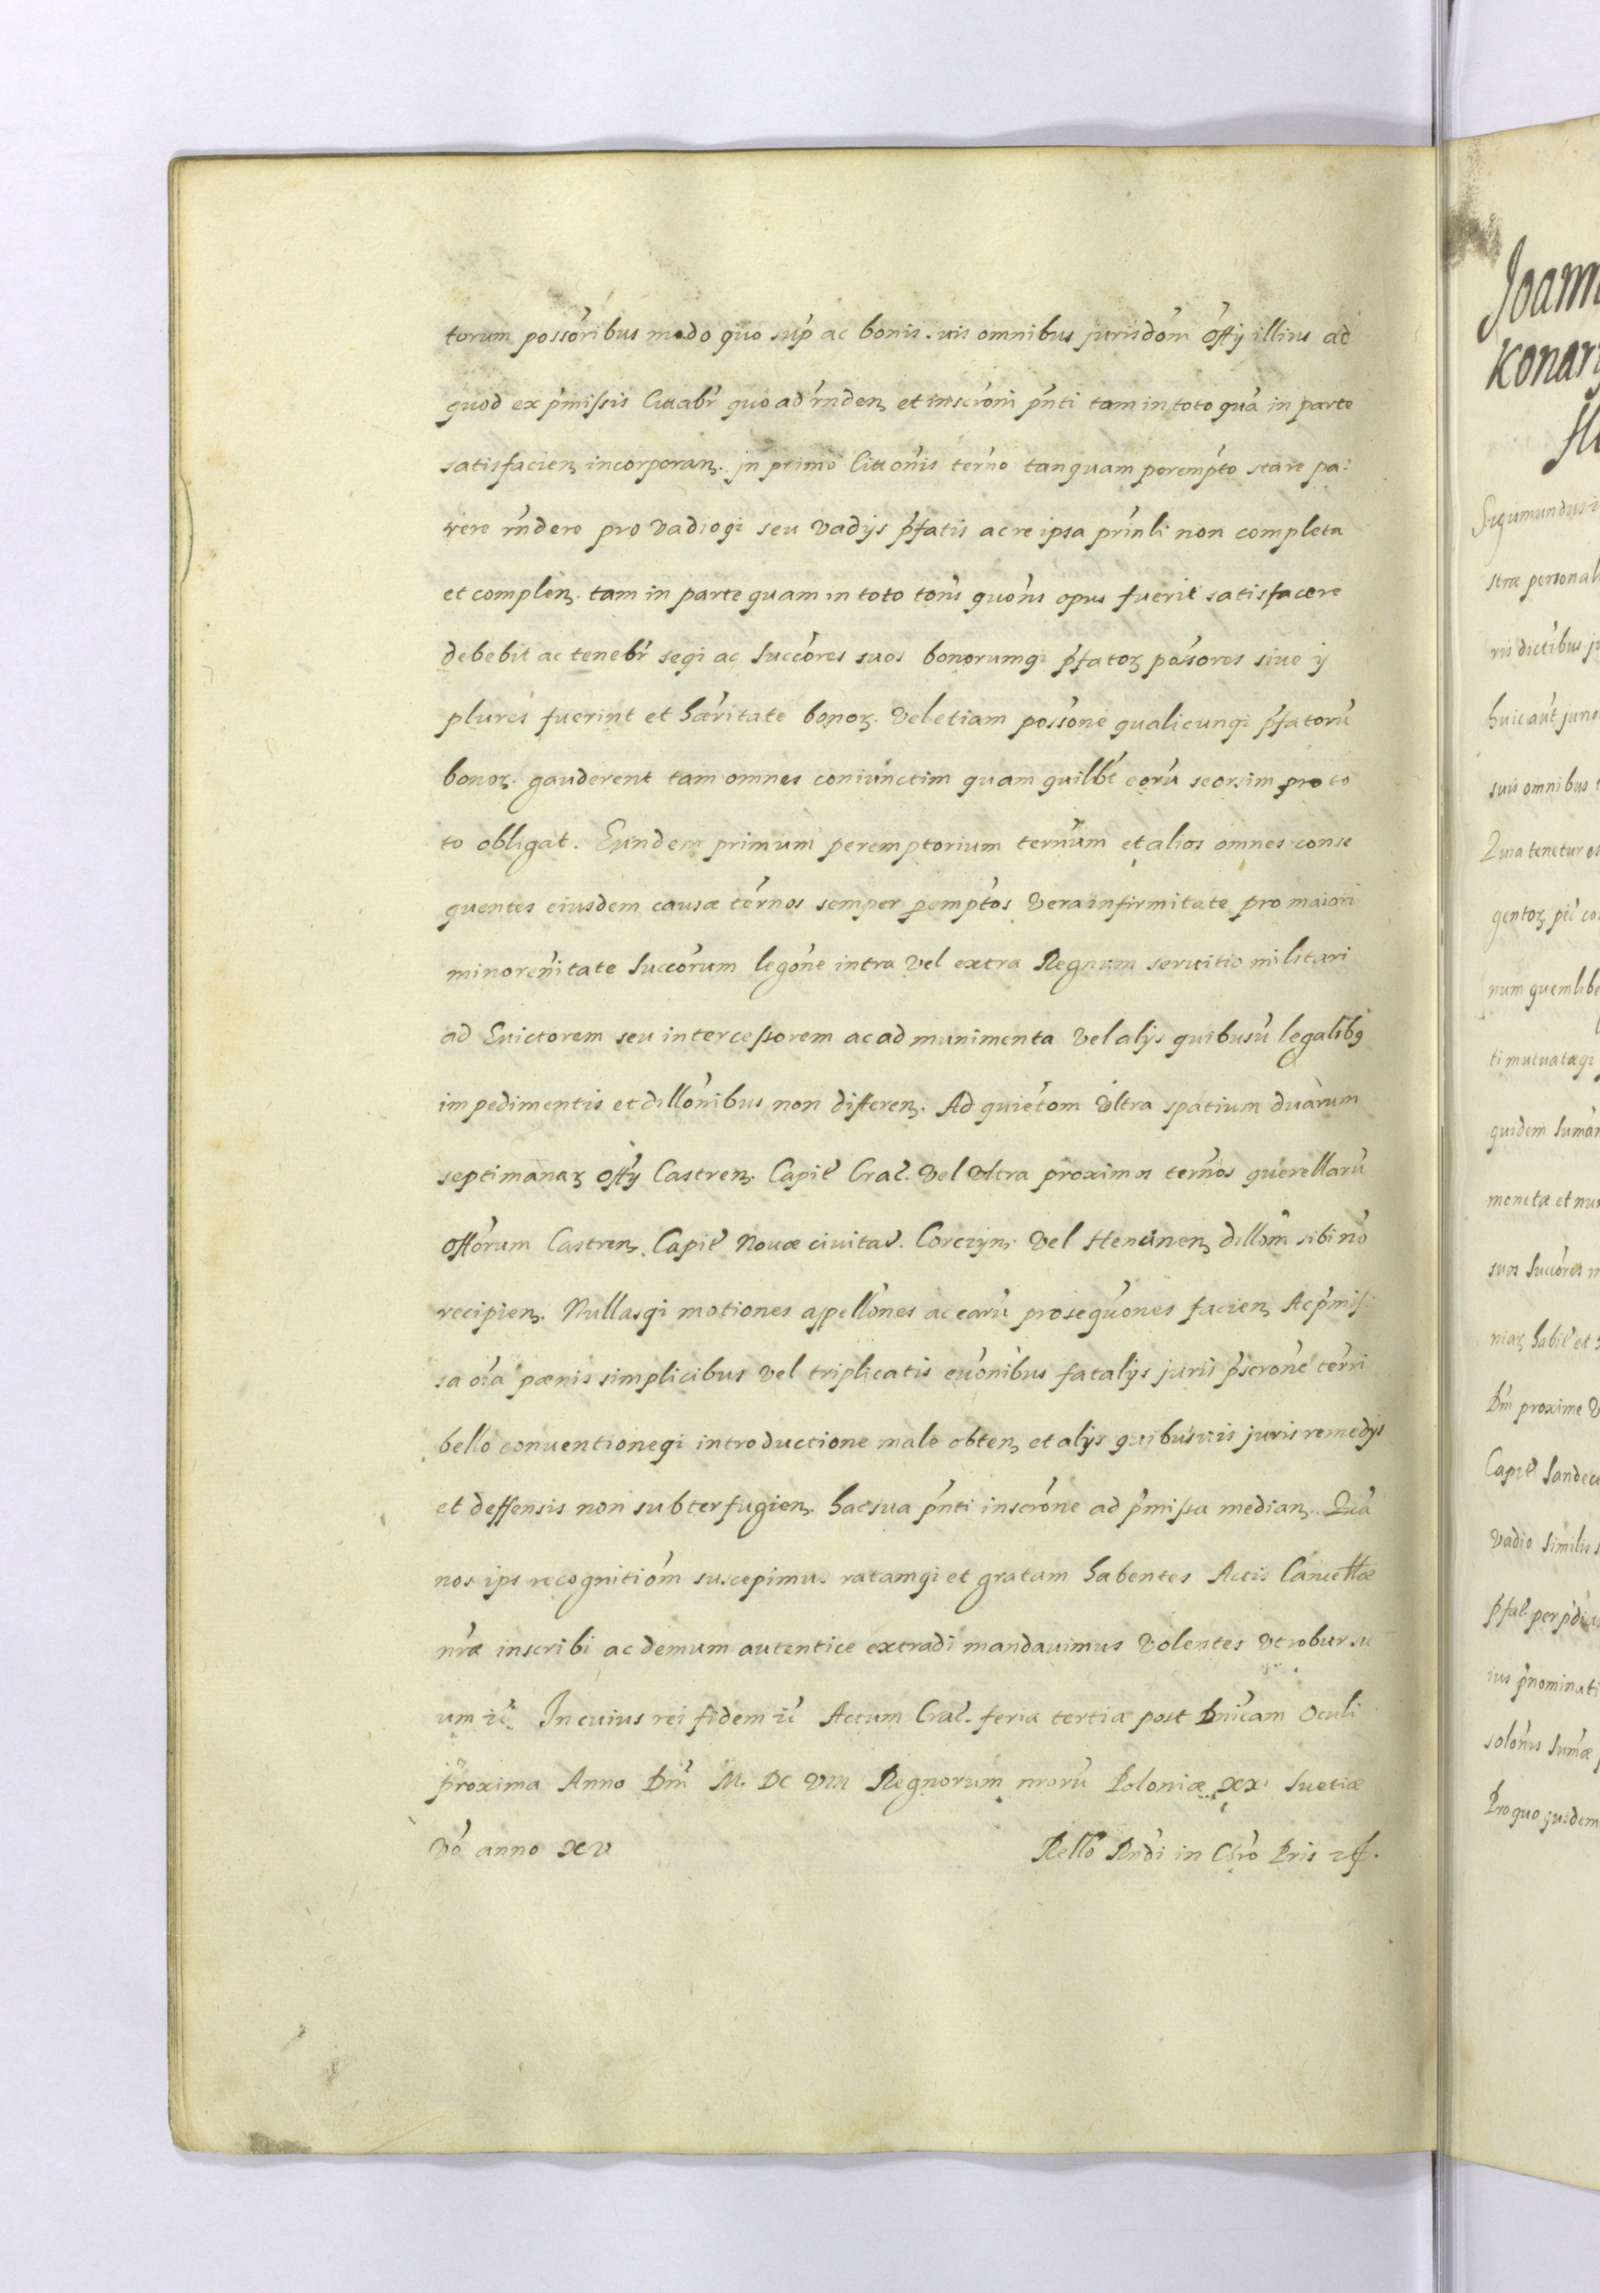 torum possoribus modo quo sup ac bonis suis omnibus jurisdom offy illius ad
quod ex pmissis Cittabr quo ad rnden et inscroni pnti tam in toto qua in parte
satisfacien incorporan. jn primo Cittonis terno tanquam perempto stare pa:
rere rndere pro vadiogi seu vadijs pfatis ac re ipsa prinli non completa
et complen. tam in parte quam in toto tons quons opus fuerit satisfacere
debebit ac tenebr segi ac Succores suos bonorumgi pfatoz possores siue ij
plures fuerint et hæritate bonoz. Vel etiam possone qualicungi pfatoru
bonoz. gauderent tam omnes coniunctim quam quilbt eoru seorsim pro to
to obligat. Eundem primum peremptorium ternum et alios omnes conse
quentes eiusdem causæ ternos semper pemptos Vera infirmitate pro maiori
minorenitate Succorum legone intra Vel extra Regnum seruitio militari
ad Euictorem seu intercessorem ac ad munimenta Vel alijs quibusu legalibq
impedimentis et dillonibus non differen. Ad quietom Ultra spatium duarum
septimanaz offy Castren. Capit Crac. Vel Ultra proximos ternos querellaru
offorum Castren. Capit Nouæ ciuitat. Corczyn. Vel dillom sibi no
recipien. Nullasgi motiones appellones ac earu prosequones facien Ac pmis
sa oia pænis simplicibus Vel triplicatis euonibus fatalijs juris pscrone terri
bello conuentionegi introductione male obten et alijs quibusuis juris remedijs
et deffensis non subterfugien. hac sua pnti inscrone ad pmissa median. Qua
nos ips recognitiom suscepimus ratamgi et gratam habentes Actis Cancellæ
nræ inscribi ac demum autentice extradi mandauimus Volentes Vt robur su
um Jn cuius rei fidem Actum Crac. feria tertia post Dnicam Oculi
proxima Anno Dni M. DC VIII Regnorum nroru Poloniæ xxi Suetiæ
Vo anno xv Rello Rndi in Chro Pris
Joann
Konar
Sigimundus
stræ personal
ris dictibus
huic aut
suis omnibus
Quia tenetur
gentoz
num quemlibe
ti mutuatægi
quidem Suma
monetæ et nu
suos Succores
niaz habil et
Dni proxime
Capit Sandec
Vadio similis
pfat per
ius pnominati
Sumæ
Pro quo quidem